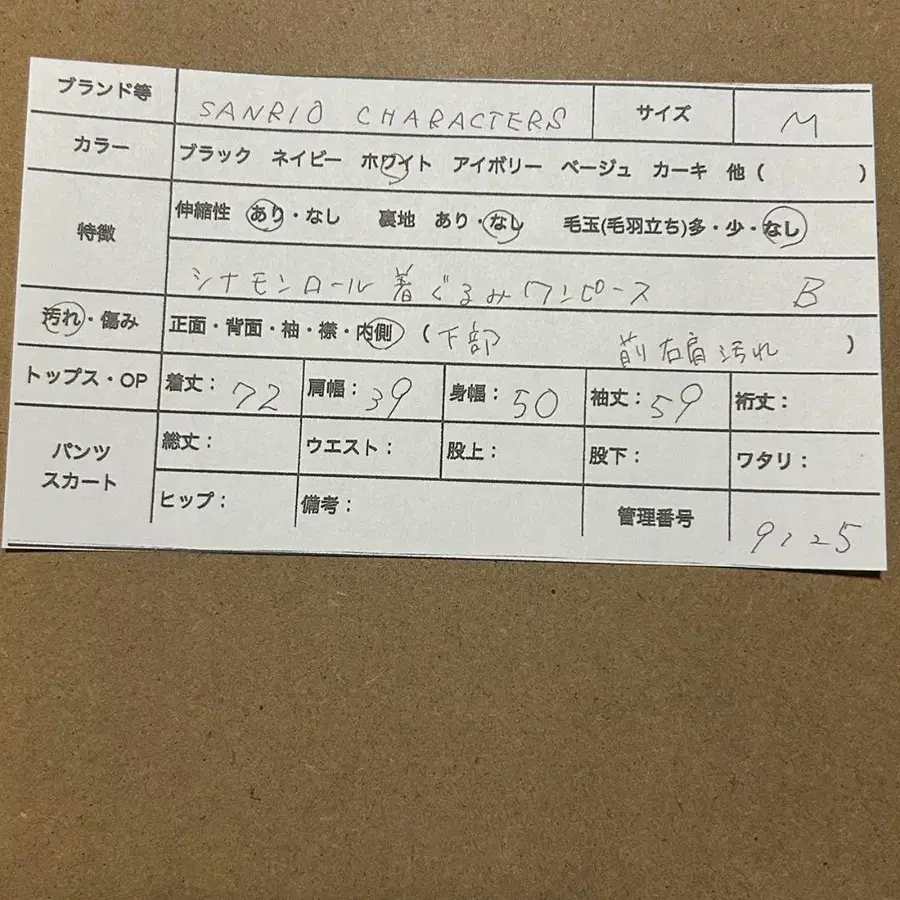 ブランド等 SANRIO CHARACTERS サイズ M
カラー ブラック ネイビー ホワイト アイボリー ベージュ カーキ 他( )
特徴 伸縮性 あり・なし 裏地 あり・なし 毛玉(毛羽立ち)多・少・なし
シナモンロール 着ぐるみワンピース B
汚れ・傷み 正面・背面・袖・襟・内側 (下部 前右肩汚れ )
トップス・OP 着丈: 72 肩幅: 39 身幅: 50 袖丈: 59 裄丈:
パンツ スカート 総丈: ウエスト: 股上: 股下: ワタリ:
ヒップ: 備考: 管理番号 9125